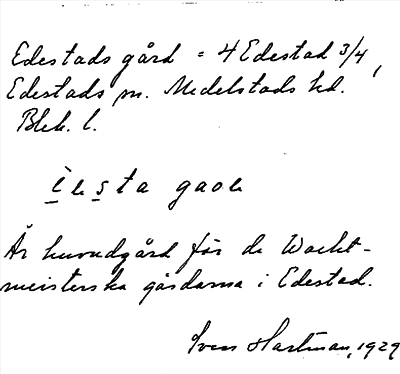 Edestads gård = 4 Edestad 3/4,
Edestads sn. Medelstads hd.
Blek. l.
Är huvudgård för de Wacht-
meisterska gårdarna i Edestad.
Sven Hartman, 1929